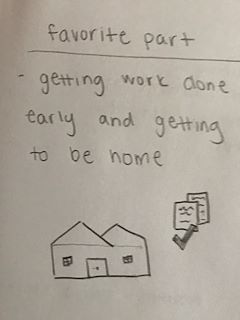 favorite part
- getting work done
early and getting
to be home